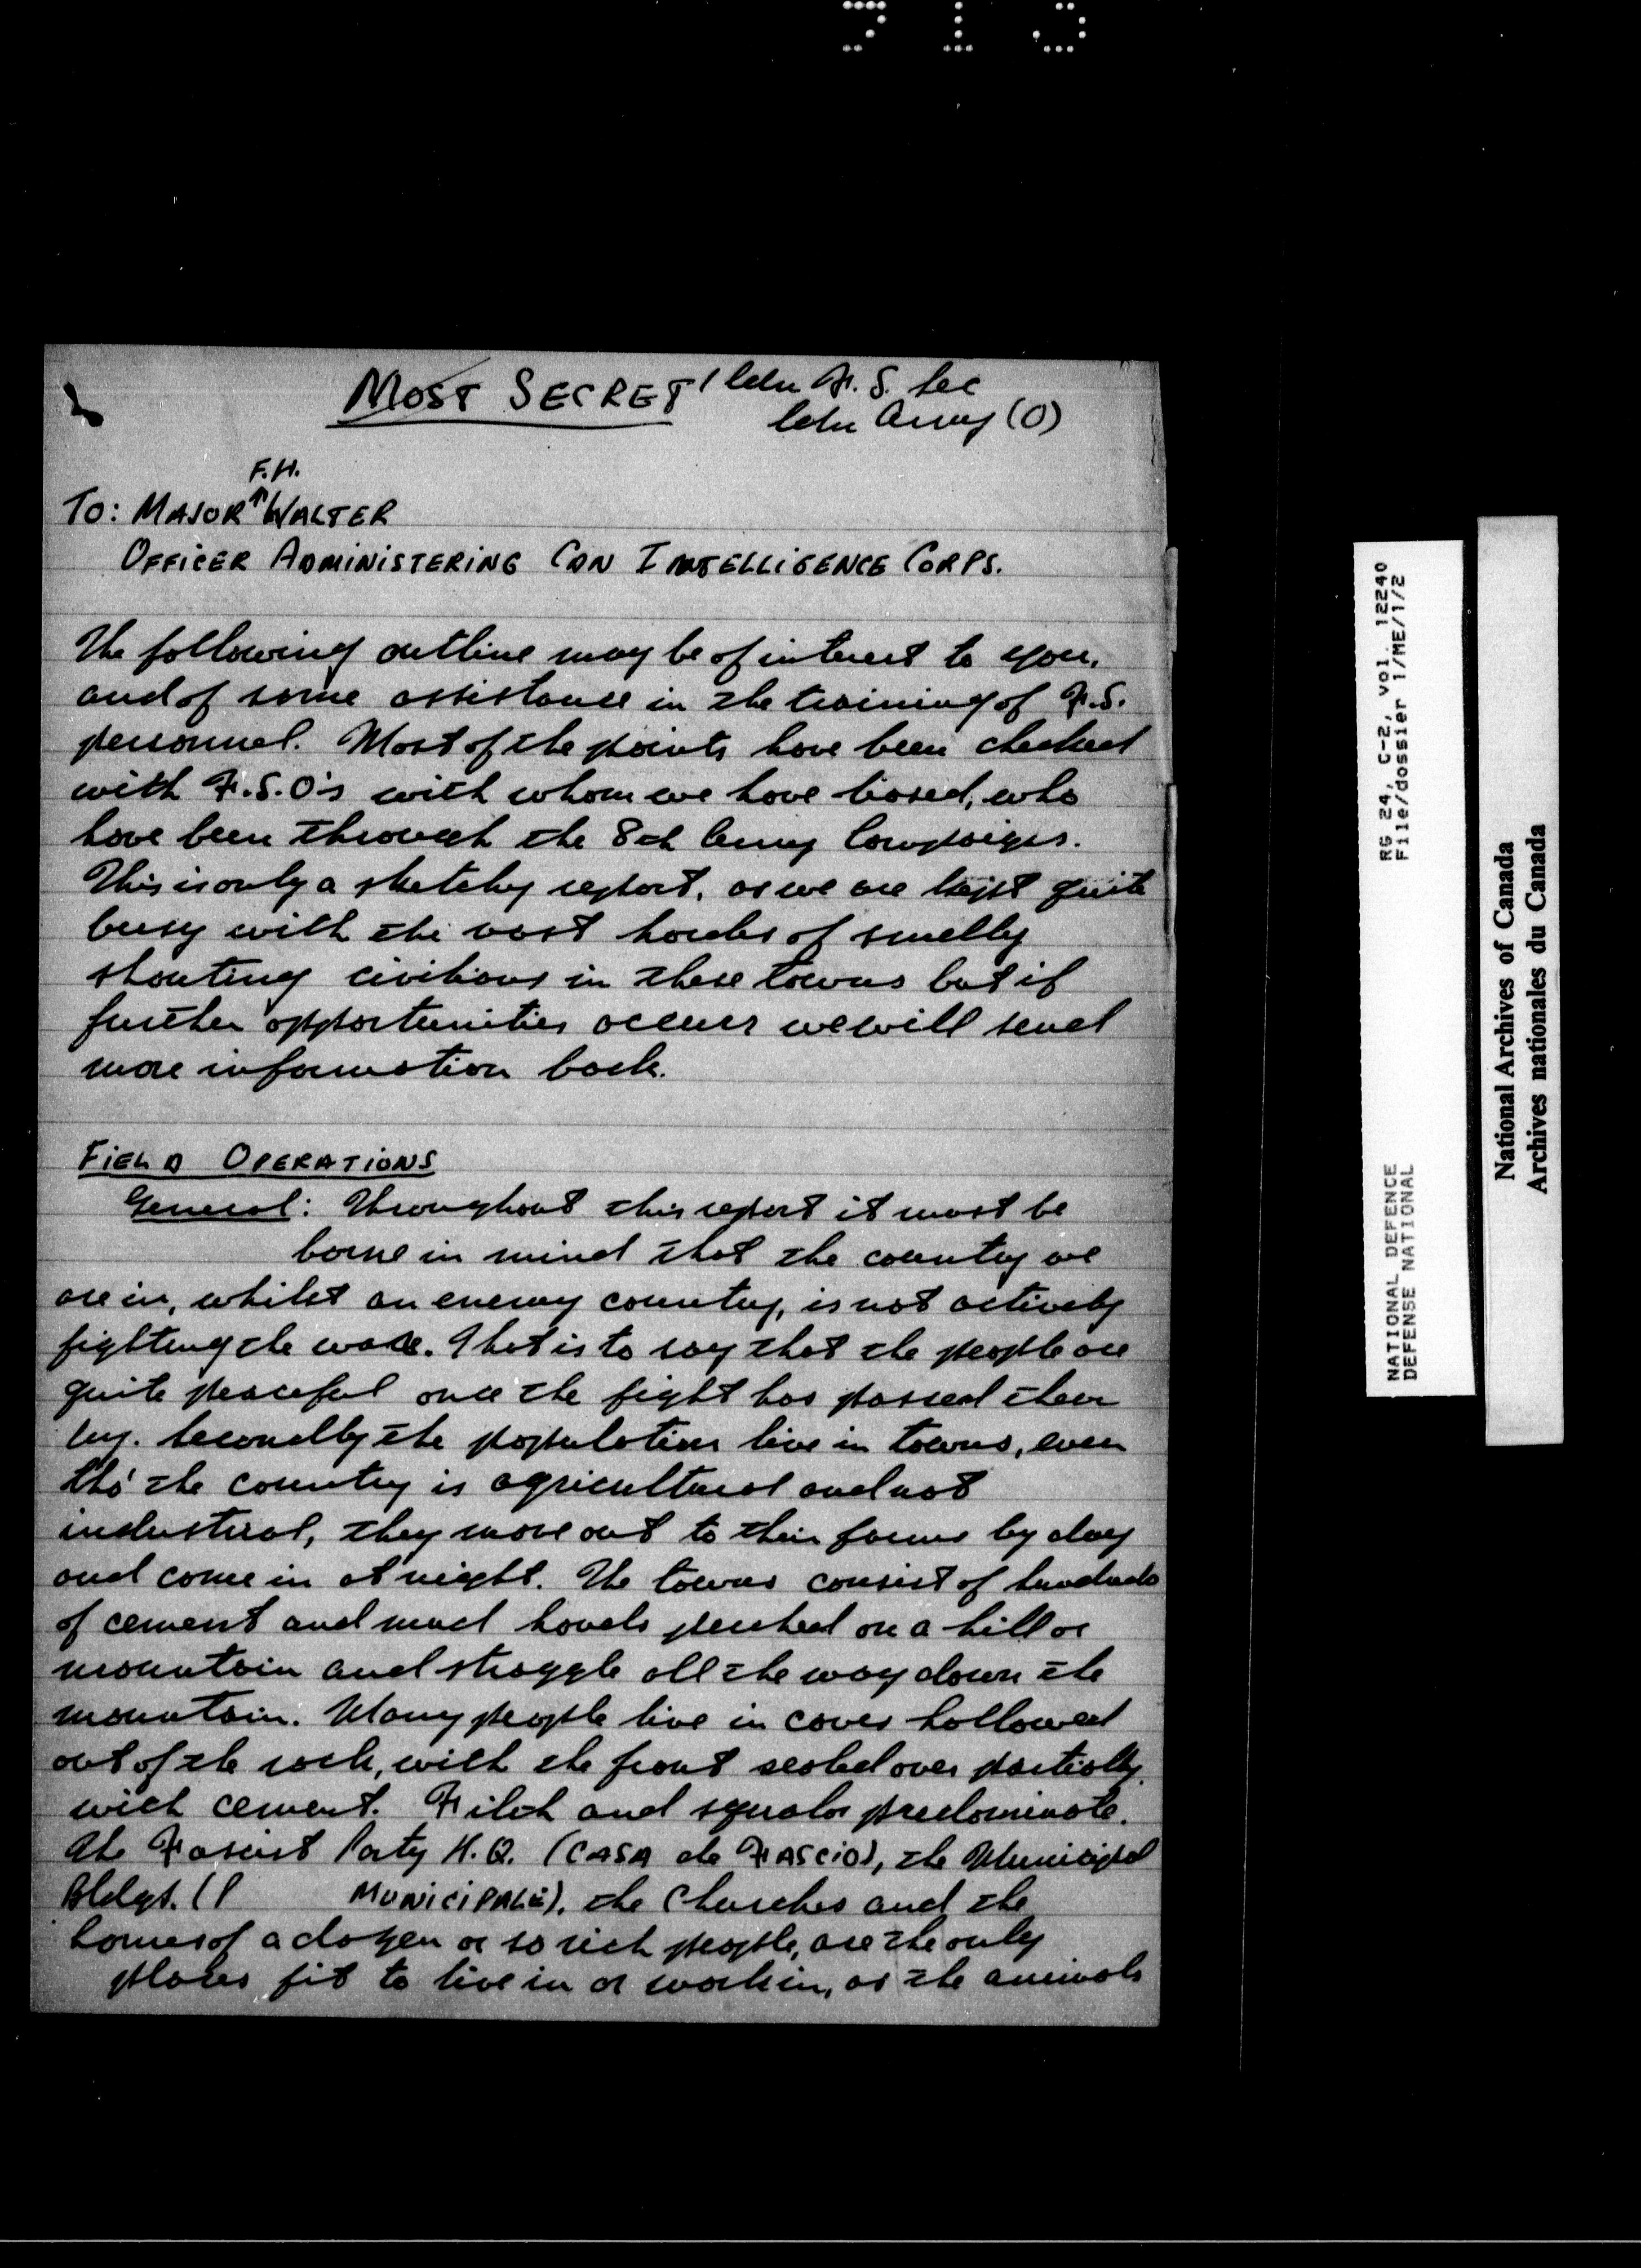 MOST SECRET 1 Cdn F.S. Sec
Cdn Army (O)
F.H.
TO: MAJOR ↑ WALTER
OFFICER ADMINISTERING CDN INTELLIGENCE CORPS.
The following outline may be of interest to you,
and of some assistance in the training of F.S.
personnel. Most of the points have been checked
with F.S.O's with whom we have liased, who
have been through the 8th Army Campaigns.
This is only a sketchy report, as we are kept quite
busy with the vast hordes of smelly
shouting civilians in these towns but if
further opportunities occurs we will send
more information back.
FIELD OPERATIONS
General: Throughout this report it must be
borne in mind that the country we
are in, whilst an enemy country, is not actively
fighting the war. That is to say that the people are
quite peaceful once the fight has passed them
by. Secondly the population live in towns, even
tho' the country is agricultural and not
industrial, they move out to their farms by day
and come in at night. The towns consist of hundreds
of cement and mud hovels perched on a hill or
mountain and straggle all the way down the
mountain. Many people live in caves hollowed
out of the rock, with the front sealed over partially
with cement. Filth and squalor predominate.
The Fascist Party H.Q. (CASA de FASCIO), the Municipal
Bldgs. (P MUNICIPALE), the Churches and the
homes of a dozen or so rich people, are the only
places fit to live in or work in, as the animals
RG 24, C-2, vol. 12240
File/dossier 1/ME/1/2
NATIONAL DEFENCE
DEFENSE NATIONAL
National Archives of Canada
Archives nationales du Canada